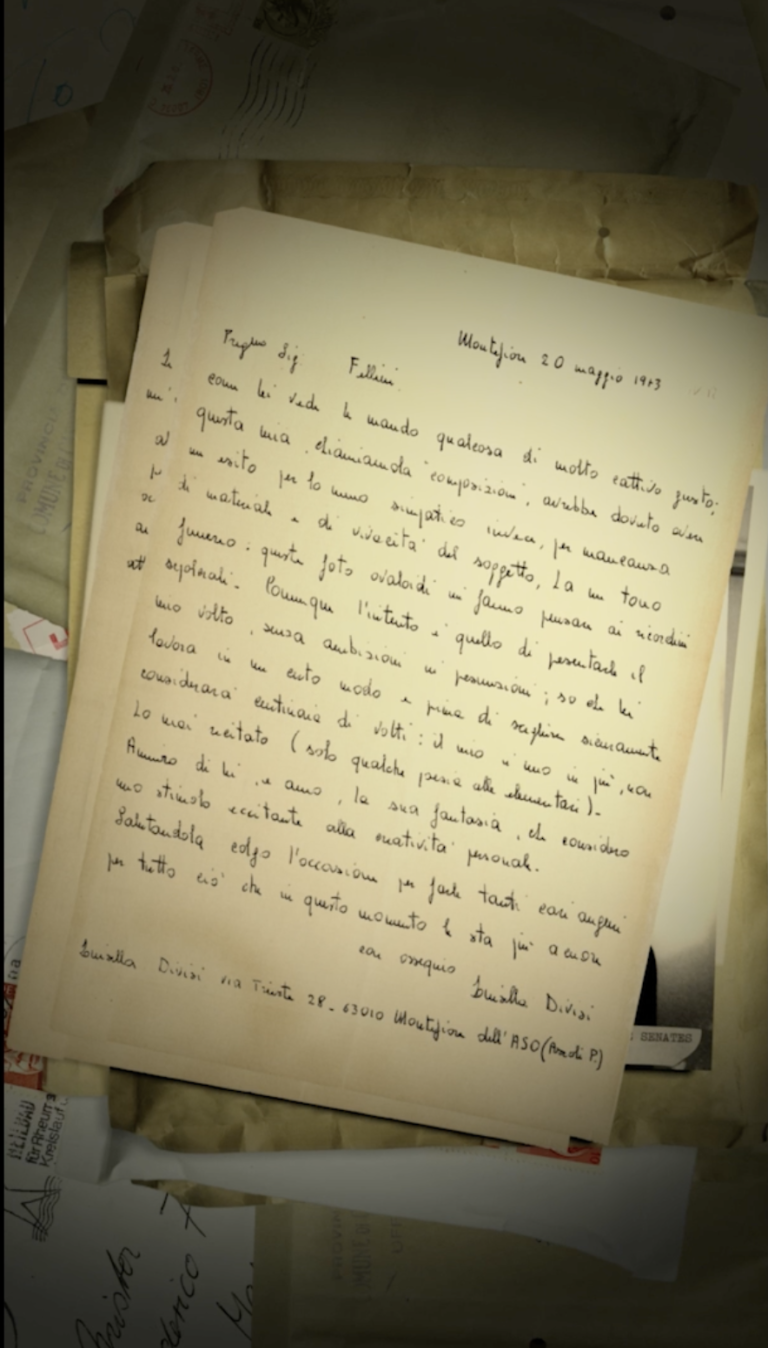 Montefiore 20 maggio 1973
Pregmo Sig. Fellini
come lei vede le mando qualcosa di molto cattivo gusto;
questa mia, chiamiamola "composizione", avrebbe dovuto avere
un esito per lo meno simpatico invece, per mancanza
di materiale e di vivacità del soggetto, ha un tono
funereo: queste foto ovaloidi mi fanno pensare ai ricordini
sepolcrali. Comunque l'intento è quello di presentarle il
mio volto, senza ambizioni né presunzioni; so che lei
lavora in un certo modo e prima di scegliere sicuramente
considererà centinaia di volti: il mio è uno in più, non
ho mai recitato (solo qualche poesia alle elementari).
Ammiro di lei, e amo, la sua fantasia, che considero
uno stimolo eccitante alla creatività personale.
Salutandola colgo l'occasione per farle tanti cari auguri
per tutto ciò che in questo momento le sta più a cuore
con ossequio Luisella Divisi
Luisella Divisi via Trieste 28 - 63010 Montefiore dell'ASO (Ascoli P.)
SENATES
PROVINCIA
COMUNE DI
HEILBAD
für Rheuma
Kreislauf